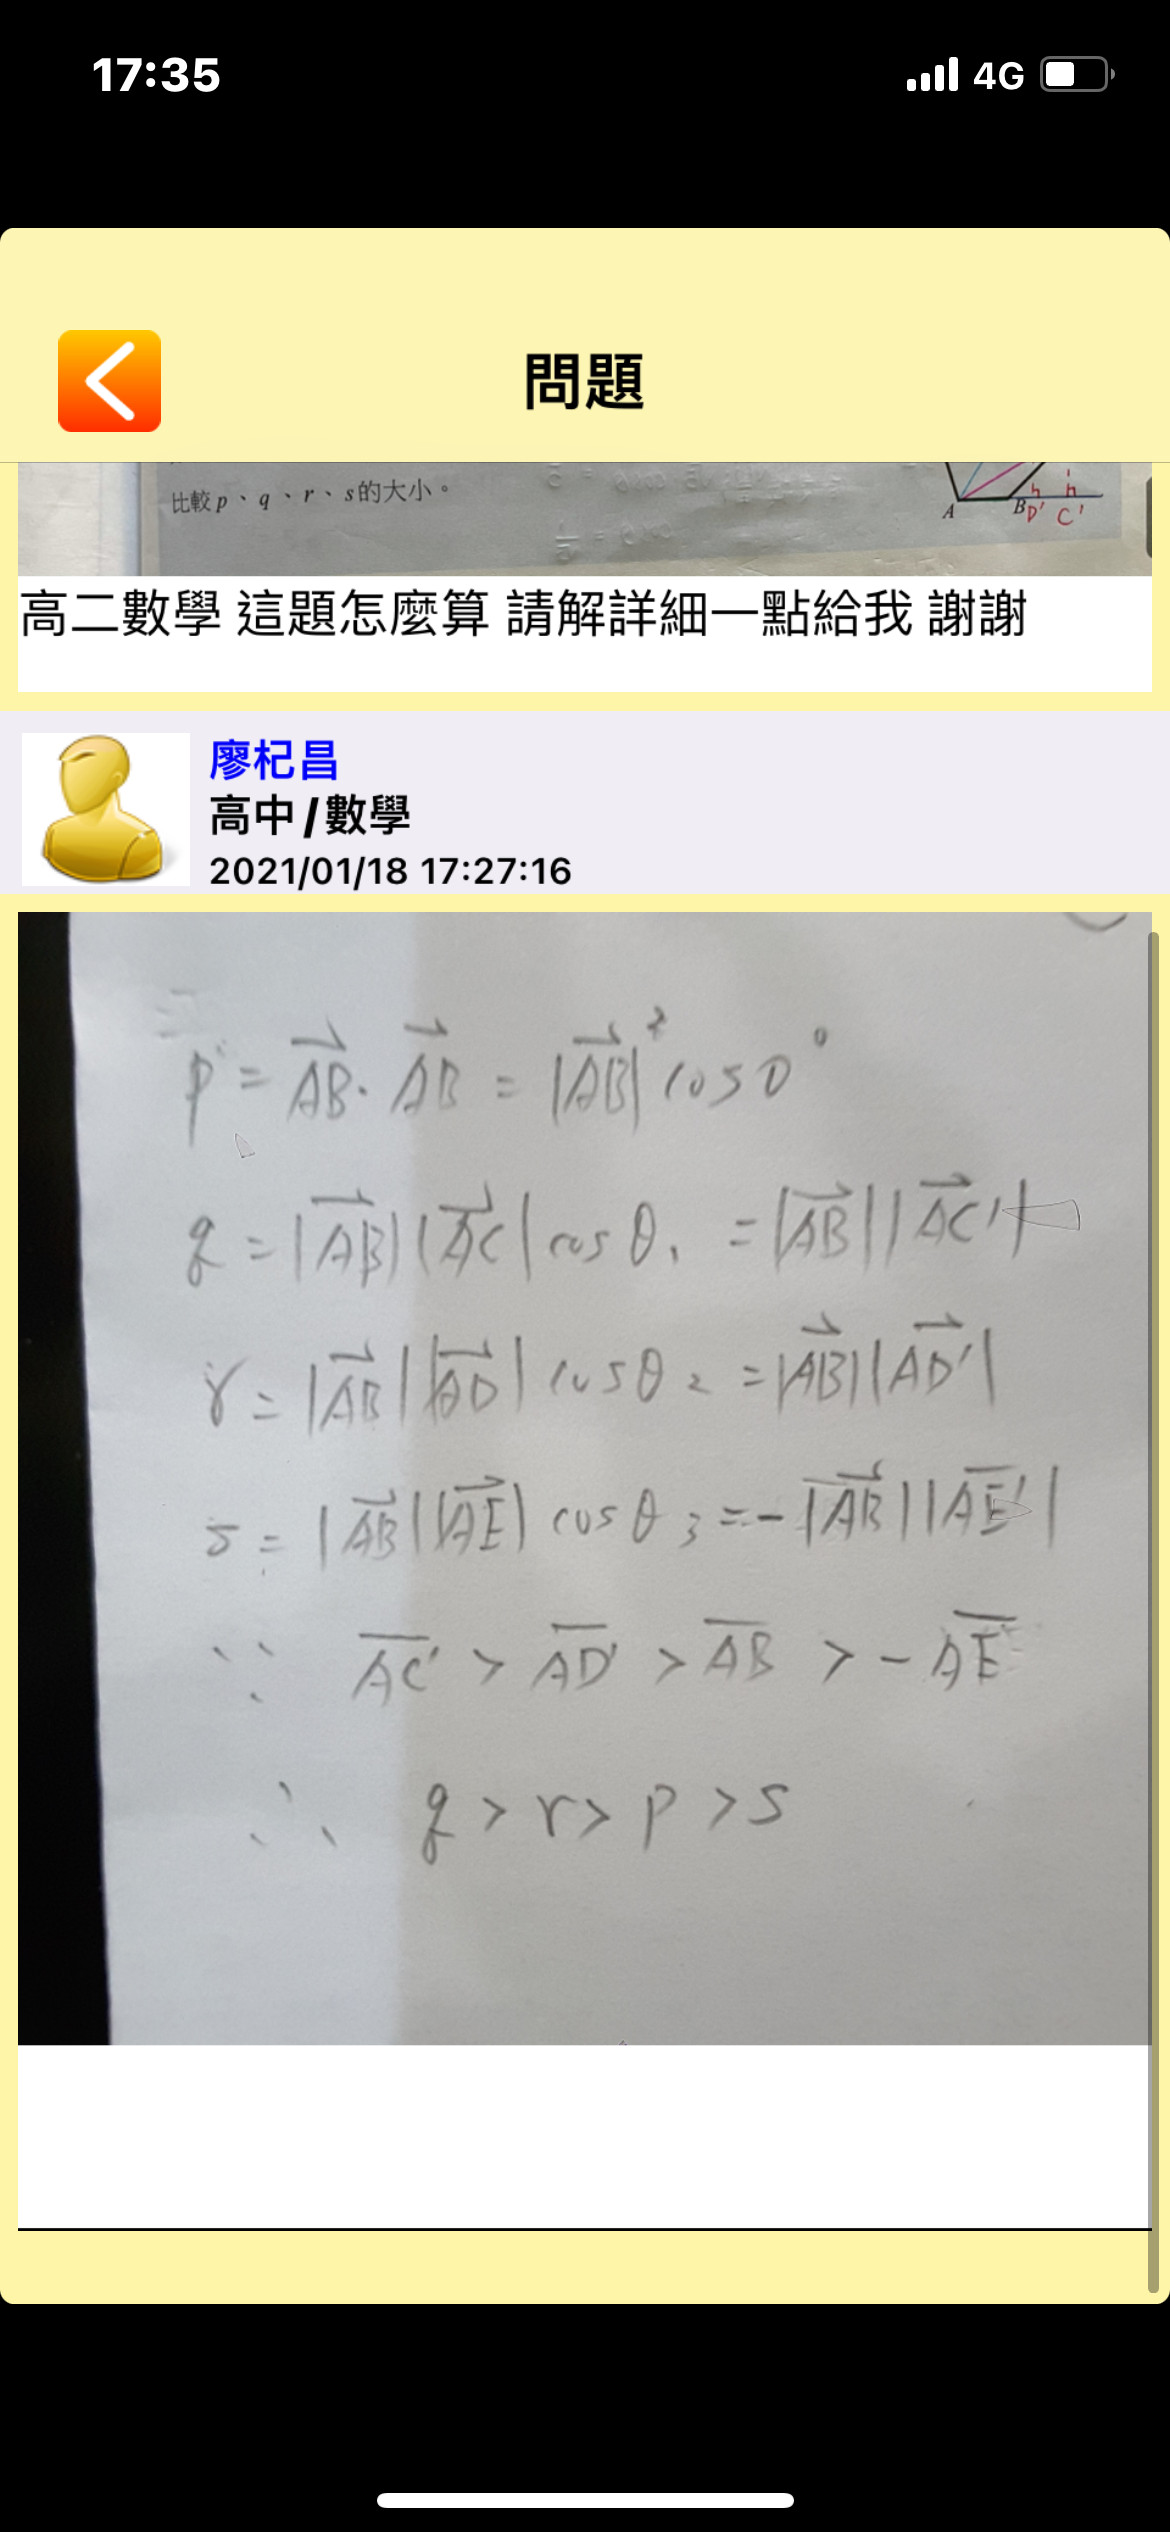 17:35 4G
問題
比較 p、q、r、s 的大小。
A B D' C'
高二數學 這題怎麼算 請解詳細一點給我 謝謝
廖杞昌
高中/數學
2021/01/18 17:27:16
p = AB⃗ · AB⃗ = |AB⃗|² cos 0°
q = |AB⃗| |AC⃗| cos θ₁ = |AB⃗| |AC'⃗|
r = |AB⃗| |AD⃗| cos θ₂ = |AB⃗| |AD'⃗|
s = |AB⃗| |AE⃗| cos θ₃ = -|AB⃗| |A̅E̅'|
∵ A̅C̅' > A̅D̅' > A̅B̅ > -A̅E̅'
∴ q > r > p > s